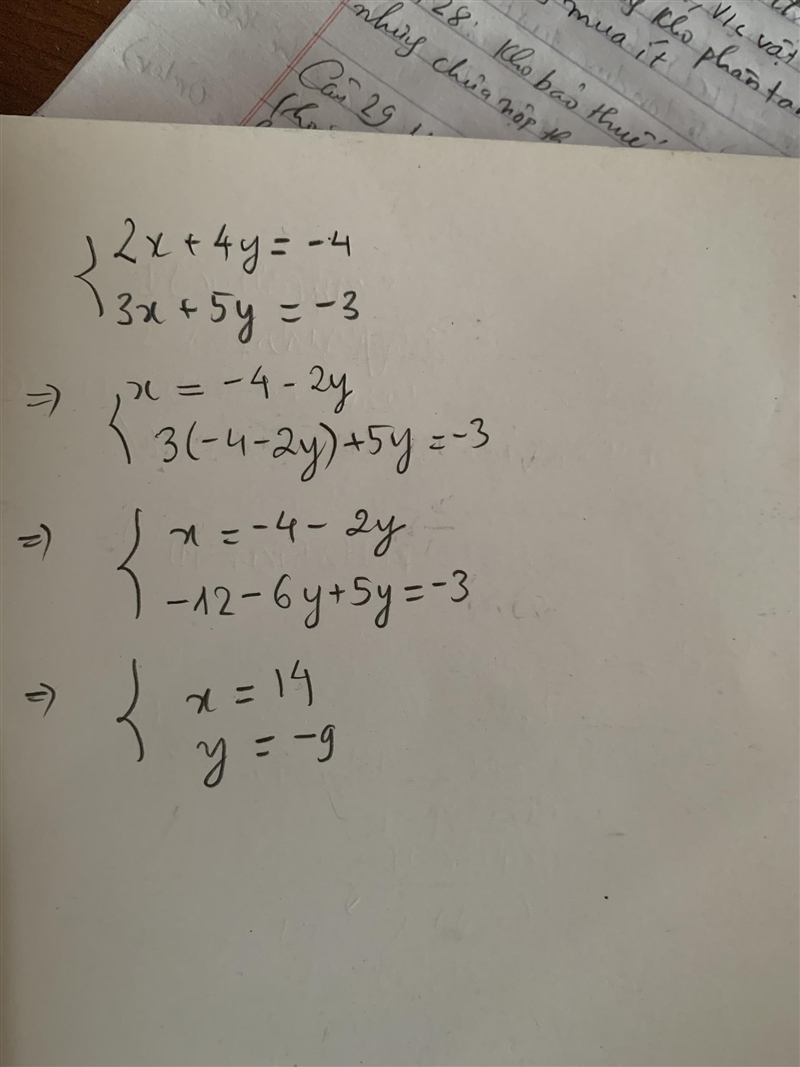 , V/c vật
kho phân tan
mua ít
28: Kho bảo thuế
nhưng chưa nộp th
Câu 29
{ 2x + 4y = -4
3x + 5y = -3
=> { x = -4 - 2y
3(-4-2y)+5y = -3
=> { x = -4 - 2y
-12 - 6y + 5y = -3
=> { x = 14
y = -9